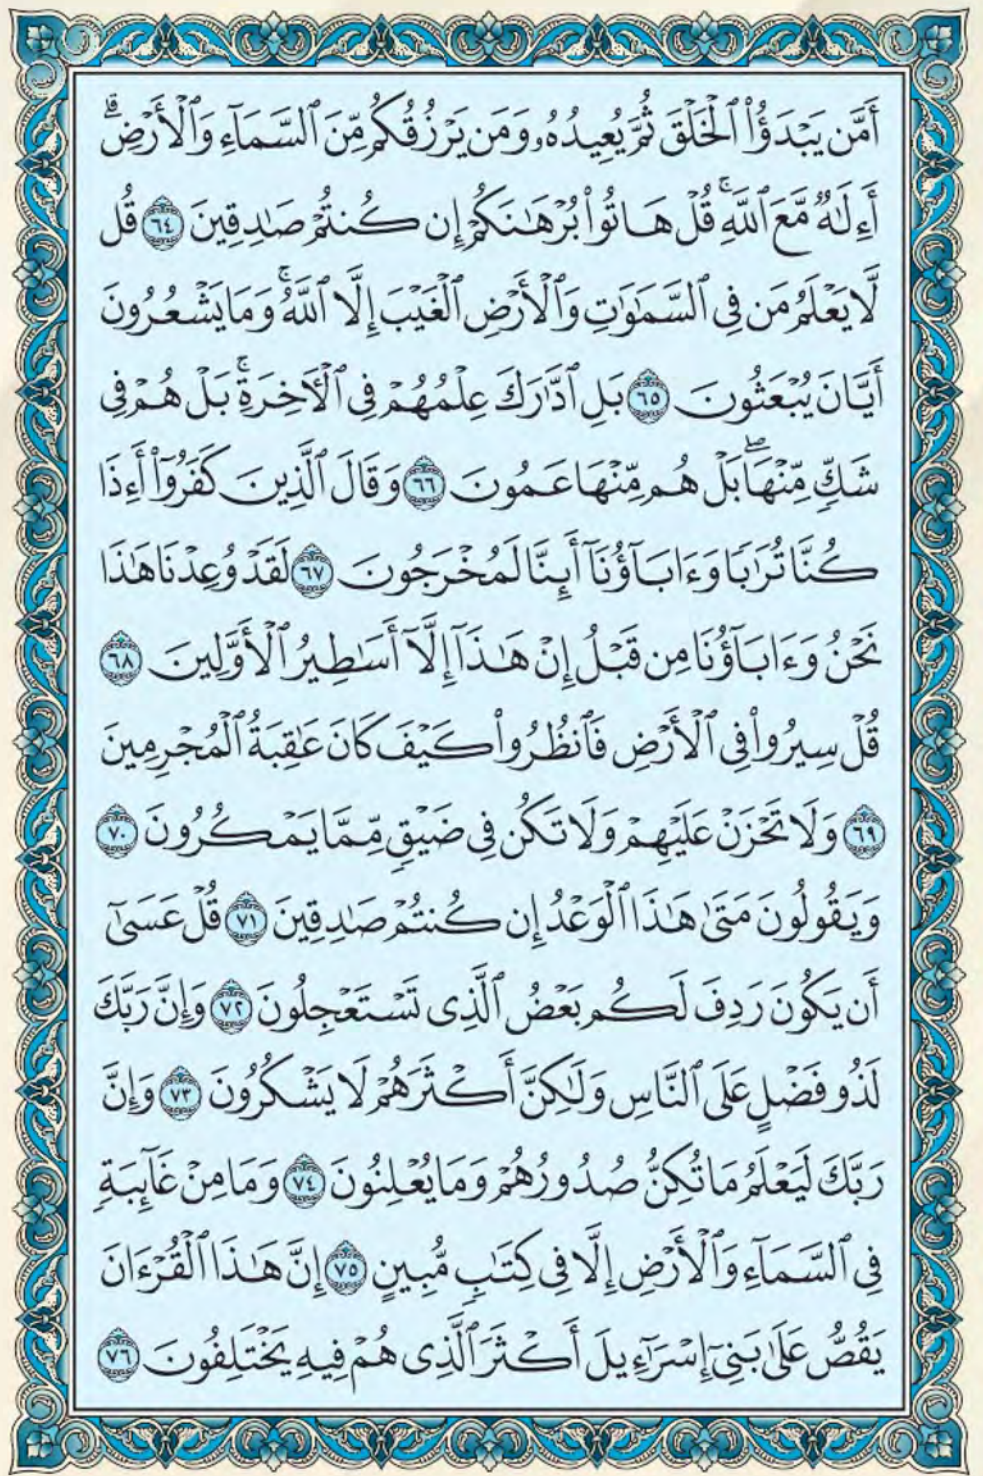 أَمَّن يَبْدَؤُا۟ ٱلْخَلْقَ ثُمَّ يُعِيدُهُۥ وَمَن يَرْزُقُكُم مِّنَ ٱلسَّمَآءِ وَٱلْأَرْضِ ۗ
أَءِلَٰهٌ مَّعَ ٱللَّهِ ۚ قُلْ هَاتُوا۟ بُرْهَٰنَكُمْ إِن كُنتُمْ صَٰدِقِينَ ٦٤ قُل
لَّا يَعْلَمُ مَن فِى ٱلسَّمَٰوَٰتِ وَٱلْأَرْضِ ٱلْغَيْبَ إِلَّا ٱللَّهُ ۚ وَمَا يَشْعُرُونَ
أَيَّانَ يُبْعَثُونَ ٦٥ بَلِ ٱدَّٰرَكَ عِلْمُهُمْ فِى ٱلْءَاخِرَةِ ۚ بَلْ هُمْ فِى
شَكٍّ مِّنْهَا ۖ بَلْ هُم مِّنْهَا عَمُونَ ٦٦ وَقَالَ ٱلَّذِينَ كَفَرُوٓا۟ أَءِذَا
كُنَّا تُرَٰبًا وَءَابَآؤُنَآ أَئِنَّا لَمُخْرَجُونَ ٦٧ لَقَدْ وُعِدْنَا هَٰذَا
نَحْنُ وَءَابَآؤُنَا مِن قَبْلُ إِنْ هَٰذَآ إِلَّآ أَسَٰطِيرُ ٱلْأَوَّلِينَ ٦٨
قُلْ سِيرُوا۟ فِى ٱلْأَرْضِ فَٱنظُرُوا۟ كَيْفَ كَانَ عَٰقِبَةُ ٱلْمُجْرِمِينَ
٦٩ وَلَا تَحْزَنْ عَلَيْهِمْ وَلَا تَكُن فِى ضَيْقٍ مِّمَّا يَمْكُرُونَ ٧٠
وَيَقُولُونَ مَتَىٰ هَٰذَا ٱلْوَعْدُ إِن كُنتُمْ صَٰدِقِينَ ٧١ قُلْ عَسَىٰٓ
أَن يَكُونَ رَدِفَ لَكُم بَعْضُ ٱلَّذِى تَسْتَعْجِلُونَ ٧٢ وَإِنَّ رَبَّكَ
لَذُو فَضْلٍ عَلَى ٱلنَّاسِ وَلَٰكِنَّ أَكْثَرَهُمْ لَا يَشْكُرُونَ ٧٣ وَإِنَّ
رَبَّكَ لَيَعْلَمُ مَا تُكِنُّ صُدُورُهُمْ وَمَا يُعْلِنُونَ ٧٤ وَمَا مِنْ غَآئِبَةٍ
فِى ٱلسَّمَآءِ وَٱلْأَرْضِ إِلَّا فِى كِتَٰبٍ مُّبِينٍ ٧٥ إِنَّ هَٰذَا ٱلْقُرْءَانَ
يَقُصُّ عَلَىٰ بَنِىٓ إِسْرَٰٓءِيلَ أَكْثَرَ ٱلَّذِى هُمْ فِيهِ يَخْتَلِفُونَ ٧٦